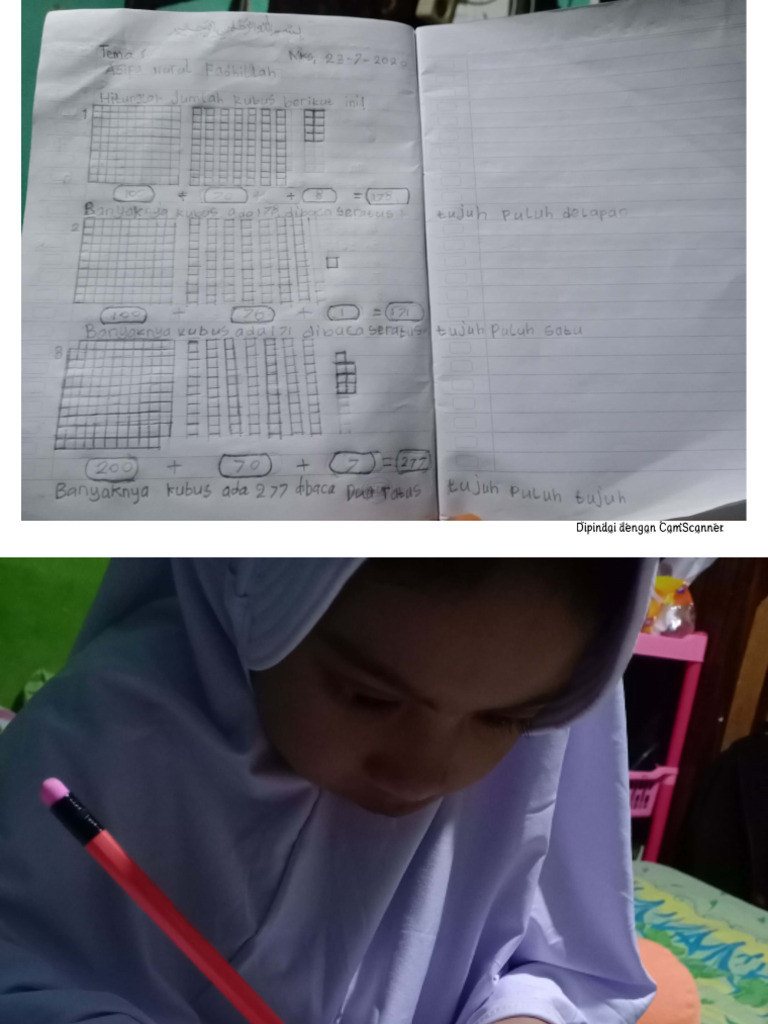 بسم الله الرحمن الرحيم
Tema 1 Mks, 23-7-2020
ASFi Nurul Fadhillah
Hitunglah Jumlah kubus berikut ini!
1
100 + 70 + 8 = 178
Banyaknya kubus ada 178 dibaca seratus tujuh puluh delapan
2
100 + 70 + 1 = 171
Banyaknya kubus ada 171 dibaca seratus tujuh puluh satu
3
200 + 70 + 7 = 277
Banyaknya kubus ada 277 dibaca Dua ratus tujuh puluh tujuh
Dipindai dengan CamScanner